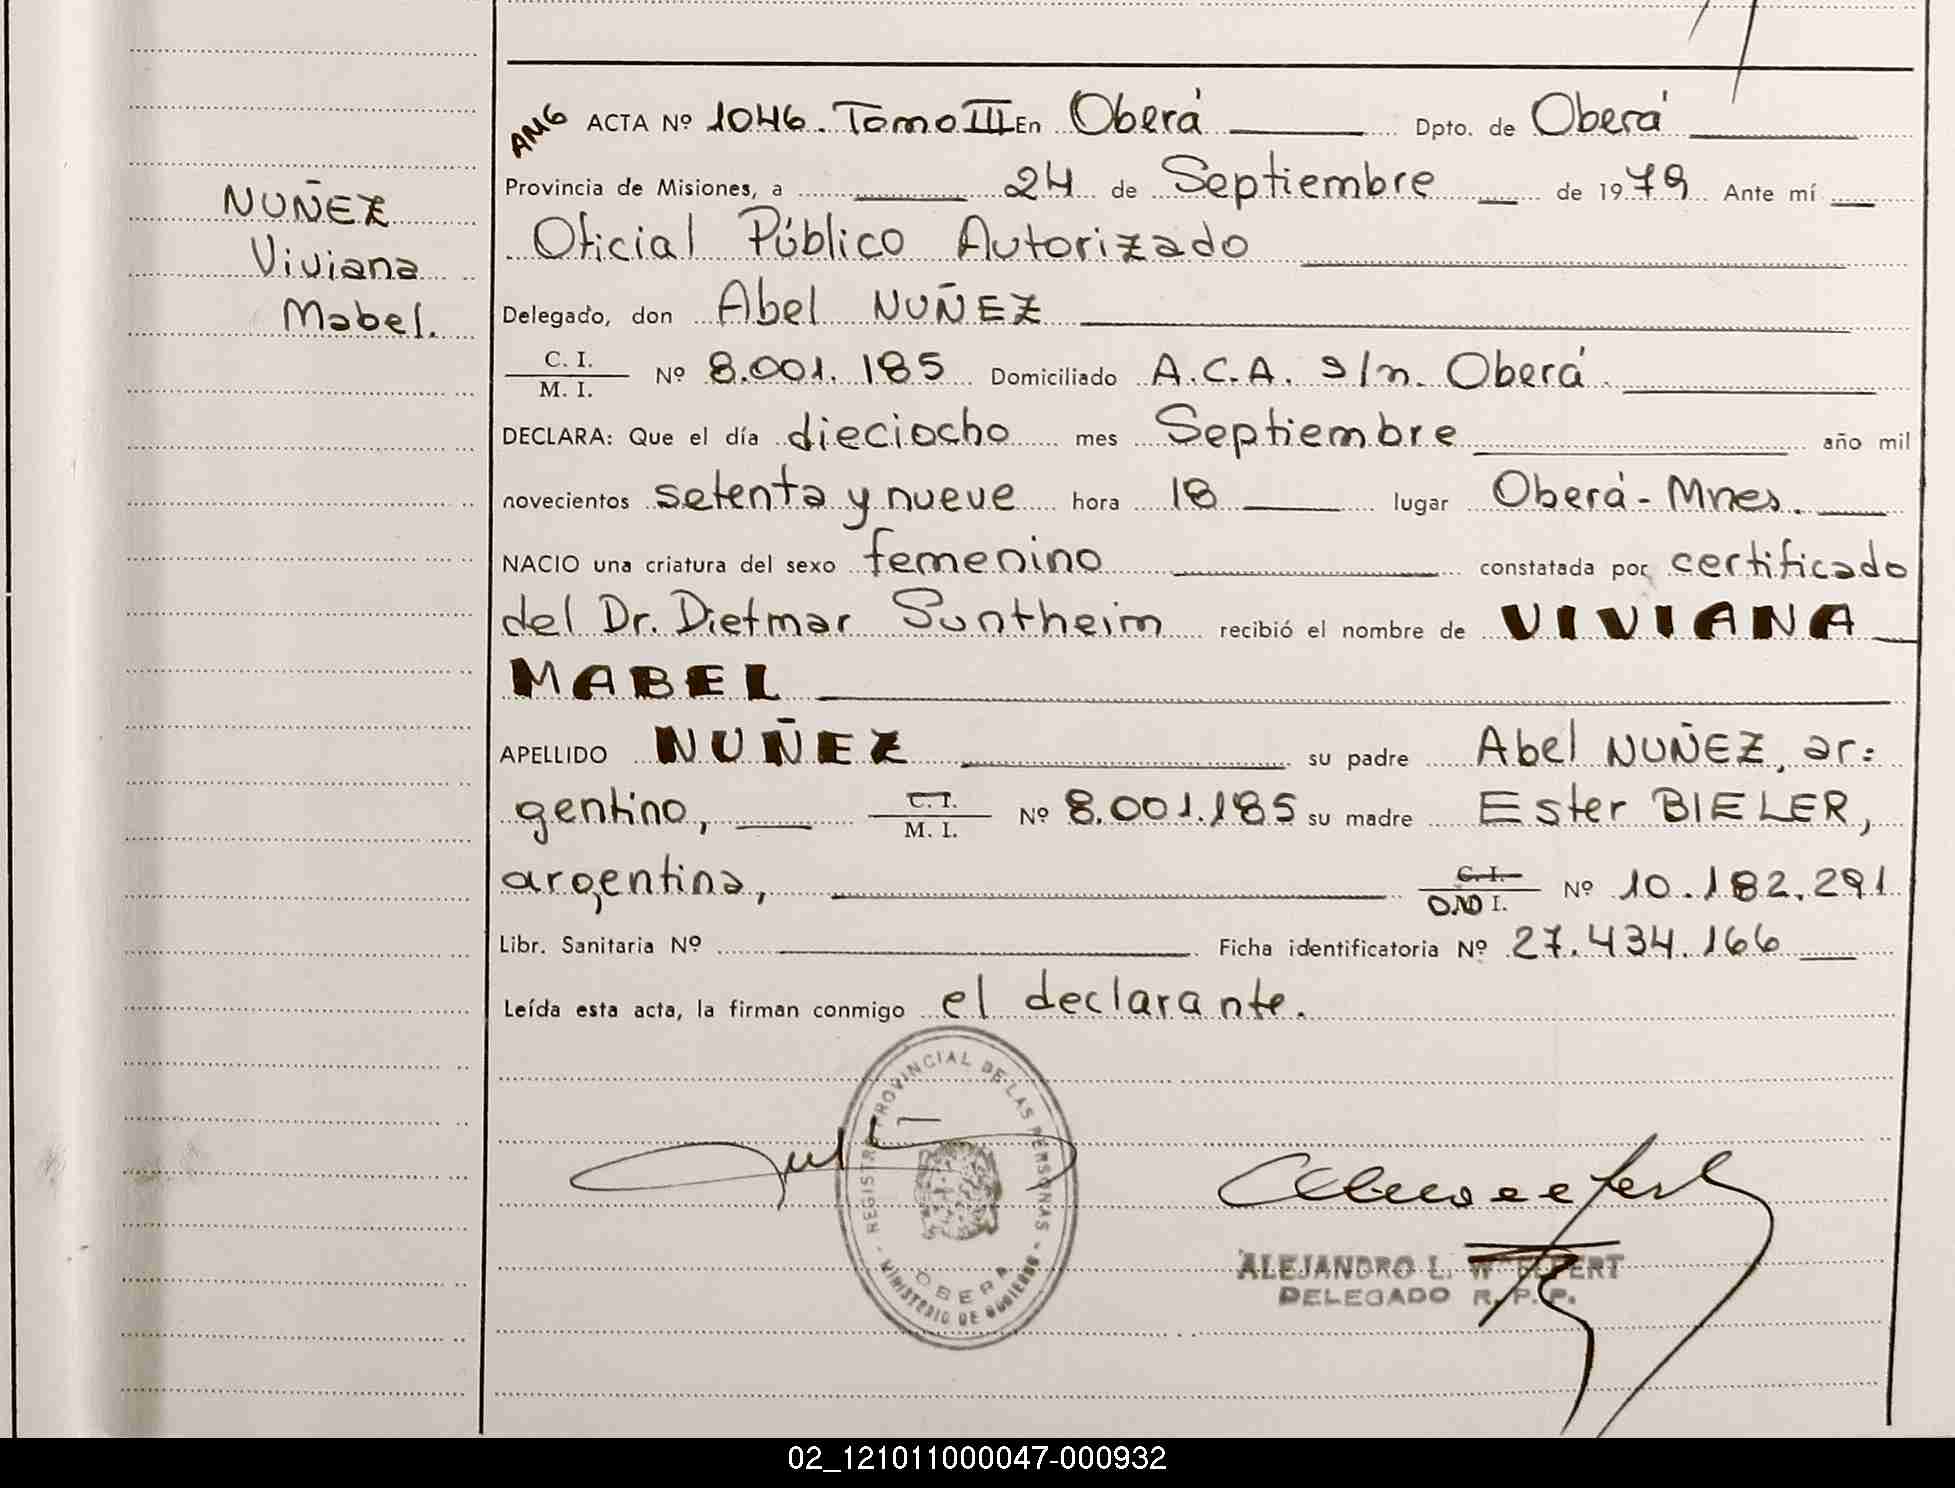 AMG ACTA Nº 1046. Tomo III En Oberá Dpto. de Oberá
Provincia de Misiones, a 24 de Septiembre de 1979 Ante mí
NUÑEZ
Viviana
Mabel.
Oficial Público Autorizado
Delegado, don Abel NUÑEZ
C. I.
M. I. Nº 8.001.185 Domiciliado A.C.A. s/n. Oberá
DECLARA: Que el día dieciocho mes Septiembre año mil
novecientos setenta y nueve hora 18 lugar Oberá - Mnes.
NACIO una criatura del sexo femenino constatada por certificado
del Dr. Dietmar Suntheim recibió el nombre de VIVIANA
MABEL
APELLIDO NUÑEZ su padre Abel NUÑEZ, ar:
gentino, C. I.
M. I. Nº 8.001.185 su madre Ester BIELER,
argentina, C. I.
DND I. Nº 10.182.291
Libr. Sanitaria Nº Ficha identificatoria Nº 27.434.166
Leída esta acta, la firman conmigo el declarante.
REGISTRO PROVINCIAL DE LAS PERSONAS
OBERA
MINISTERIO DE GOBIERNO
ALEJANDRO L.
DELEGADO R. P. P.
02_121011000047-000932